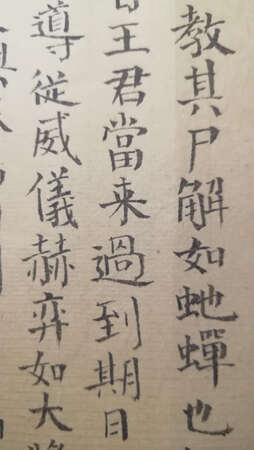 教其尸解如虵蟬也
王君當来過到期日
導從威儀赫弈如大